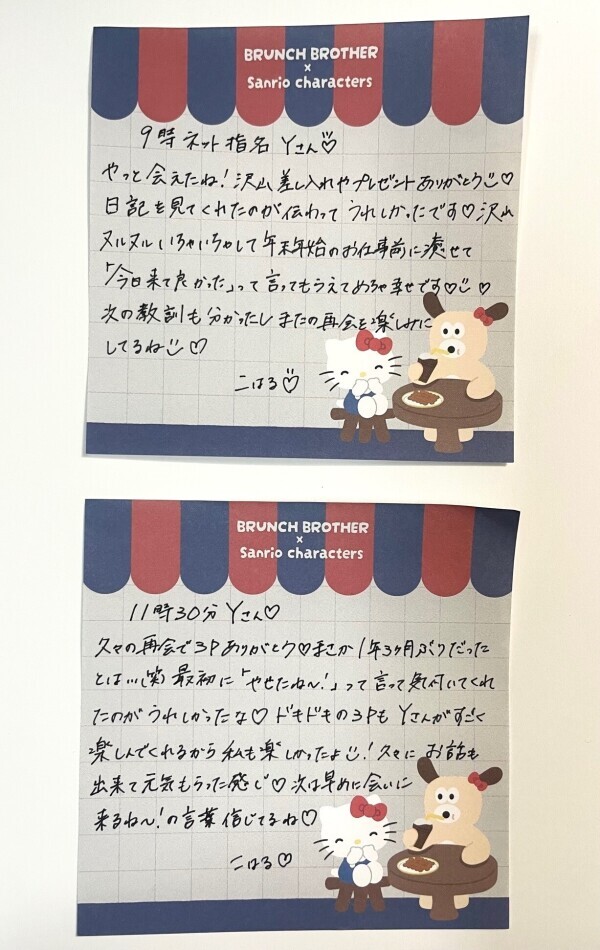 BRUNCH BROTHER
×
Sanrio characters
9時 ネット指名 Yさん♡
やっと会えたね!沢山差し入れやプレゼントありがとう♡
日記を見てくれたのが伝わって うれしかったです♡沢山
ヌルヌルいちゃいちゃして年末年始のお仕事前に癒せて
「今日来て良かった」って言ってもらえてめちゃ幸せです♡♡
次の教訓も分かったし またの再会を楽しみに
してるね♡
こはる♡
BRUNCH BROTHER
×
Sanrio characters
11時30分 Yさん♡
久々の再会で3Pありがとう♡まさか1年3ヶ月ぶりだった
とは…(笑) 最初に「やせたね〜!」って言って気付いてくれ
たのがうれしかったな♡ ドキドキの3Pも Yさんがすごく
楽しんでくれるから私も楽しかったよ!久々に お話も
出来て元気もらった感じ♡次は早めに会いに
来るね〜!の言葉信じてるね♡
こはる♡